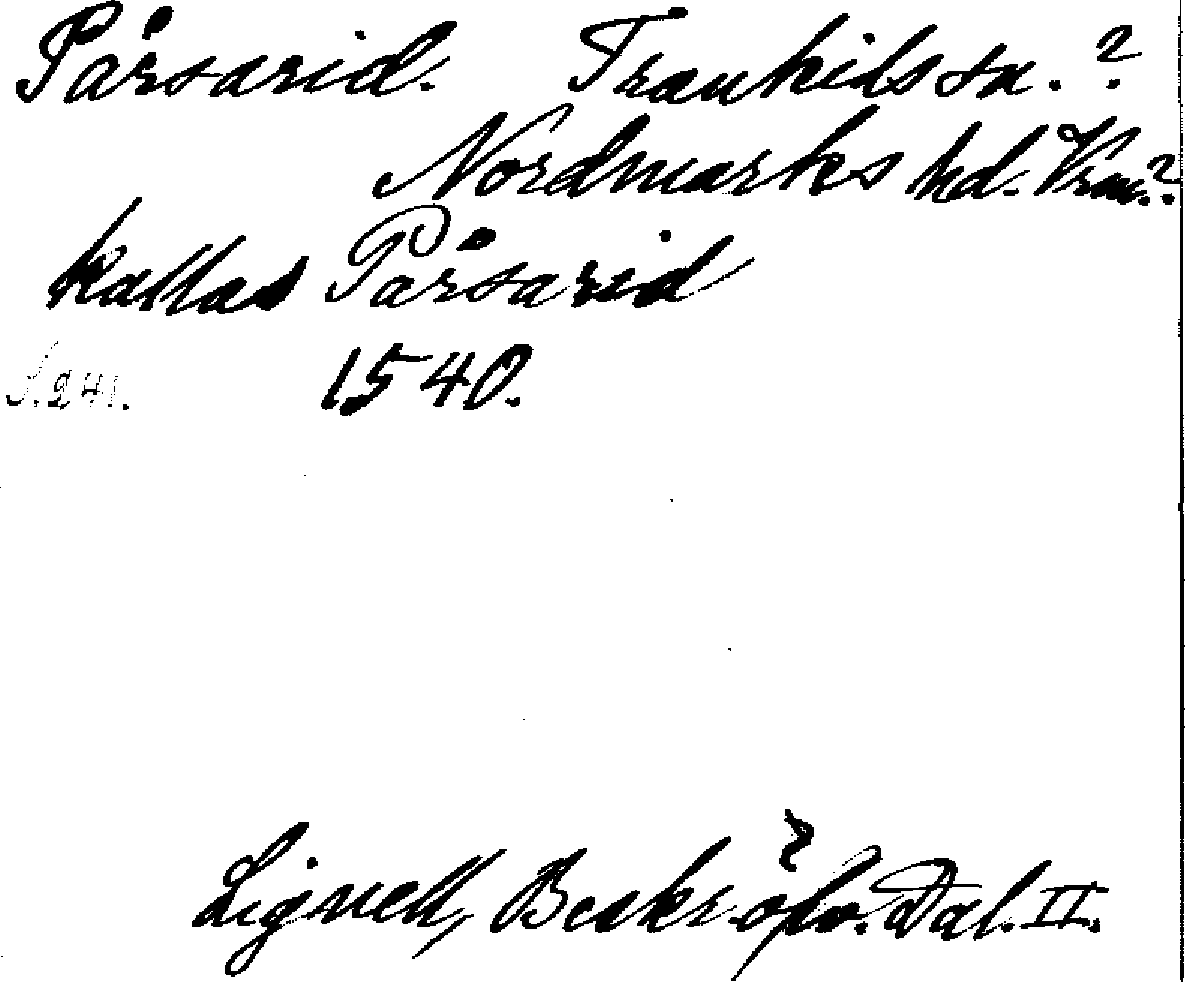 Pårsarid. Trankils sn.?
Nordmarks hd. Vrm.?
kallas Pårsarid
S. 241. 1540.
Lignell, Beskr. öfv. Dal. II.